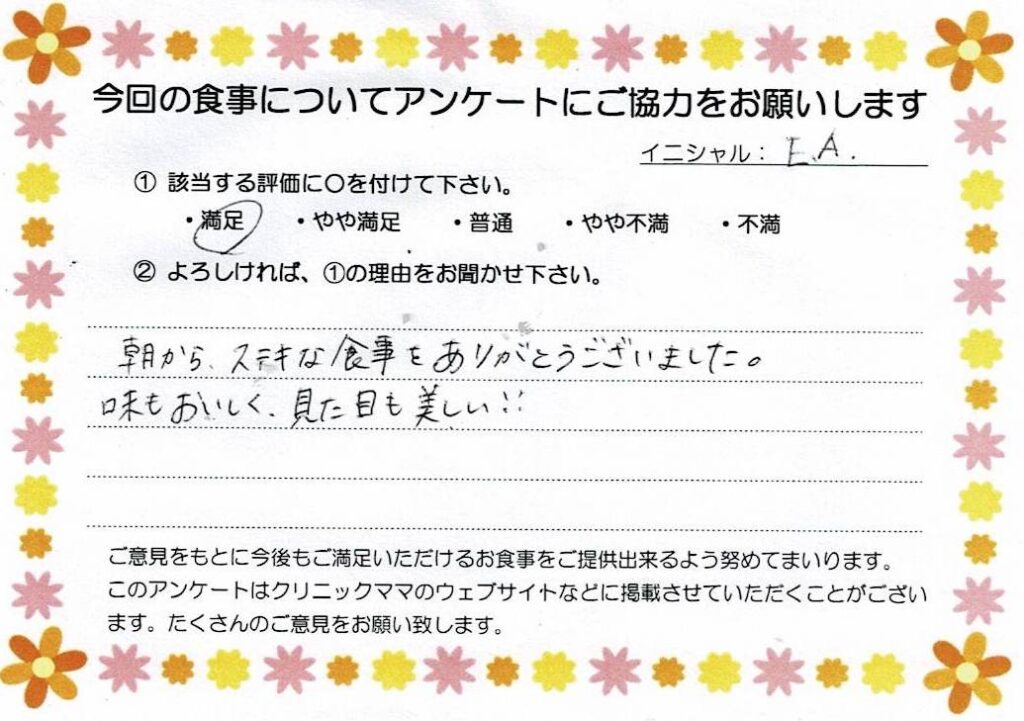 今回の食事についてアンケートにご協力をお願いします
イニシャル： E.A.
① 該当する評価に〇を付けて下さい。
・満足 ・やや満足 ・普通 ・やや不満 ・不満
② よろしければ、①の理由をお聞かせ下さい。
朝から、ステキな食事をありがとうございました。
味もおいしく、見た目も美しい!!
ご意見をもとに今後もご満足いただけるお食事をご提供出来るよう努めてまいります。
このアンケートはクリニックママのウェブサイトなどに掲載させていただくことがござい
ます。たくさんのご意見をお願い致します。